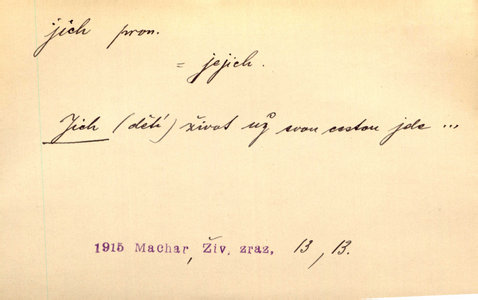 jich pron.
= jejich.
Jich (dětí) život už svou cestou jde ...
1915 Machar, Živ. zraz, 13, 13.